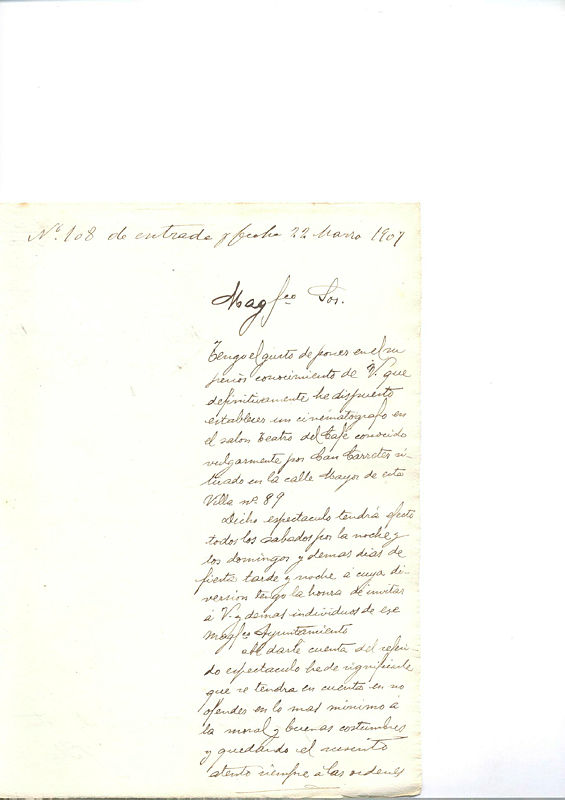 Nº 108 de entrada y fecha 22 Marzo 1907
Magfco Sor.
Tengo el gusto de poner en el su
perior conocimiento de V. que
definitivamente he dispuesto
establecer un cinematografo en
el salon Teatro del Café conocido
vulgarmente por Can Carretes si-
tuado en la calle Mayor de esta
Villa nº 89
Dicho espectaculo tendrá efecto
todos los sabados por la noche y
los domingos y demas dias de
fiesta tarde y noche á cuya di-
version tengo la honra de invitar
á V. y demas individuos de ese
Magfco Ayuntamiento
Al darle cuenta del referi-
do espectaculo he de significarle
que se tendra en cuenta en no
ofender en lo mas minimo á
la moral y buenas costumbres
y quedando el suscrito
atento siempre á las ordenes